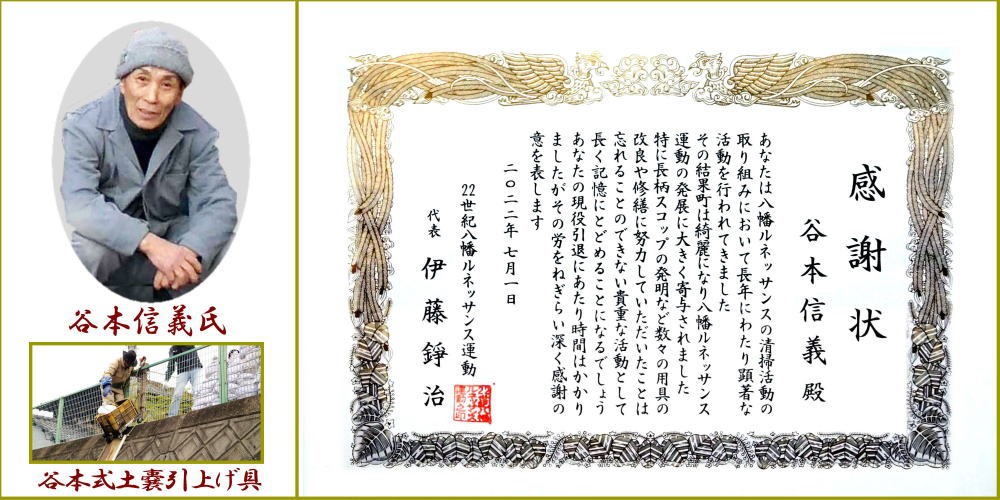 谷本信義氏
谷本式土嚢引上げ具
感謝状
谷本信義殿
あなたは八幡ルネッサンスの清掃活動の
取り組みにおいて長年にわたり顕著な
活動を行われてきました
その結果町は綺麗になり八幡ルネッサンス
運動の発展に大きく寄与されました
特に長柄スコップの発明など数々の用具の
改良や修繕に努力していただいたことは
忘れることのできない貴重な活動として
長く記憶にとどめることになるでしょう
あなたの現役引退にあたり時間はかかり
ましたがその労をねぎらい深く感謝の
意を表します
二〇二二年七月一日
22世紀八幡ルネッサンス運動
代表 伊藤錚治